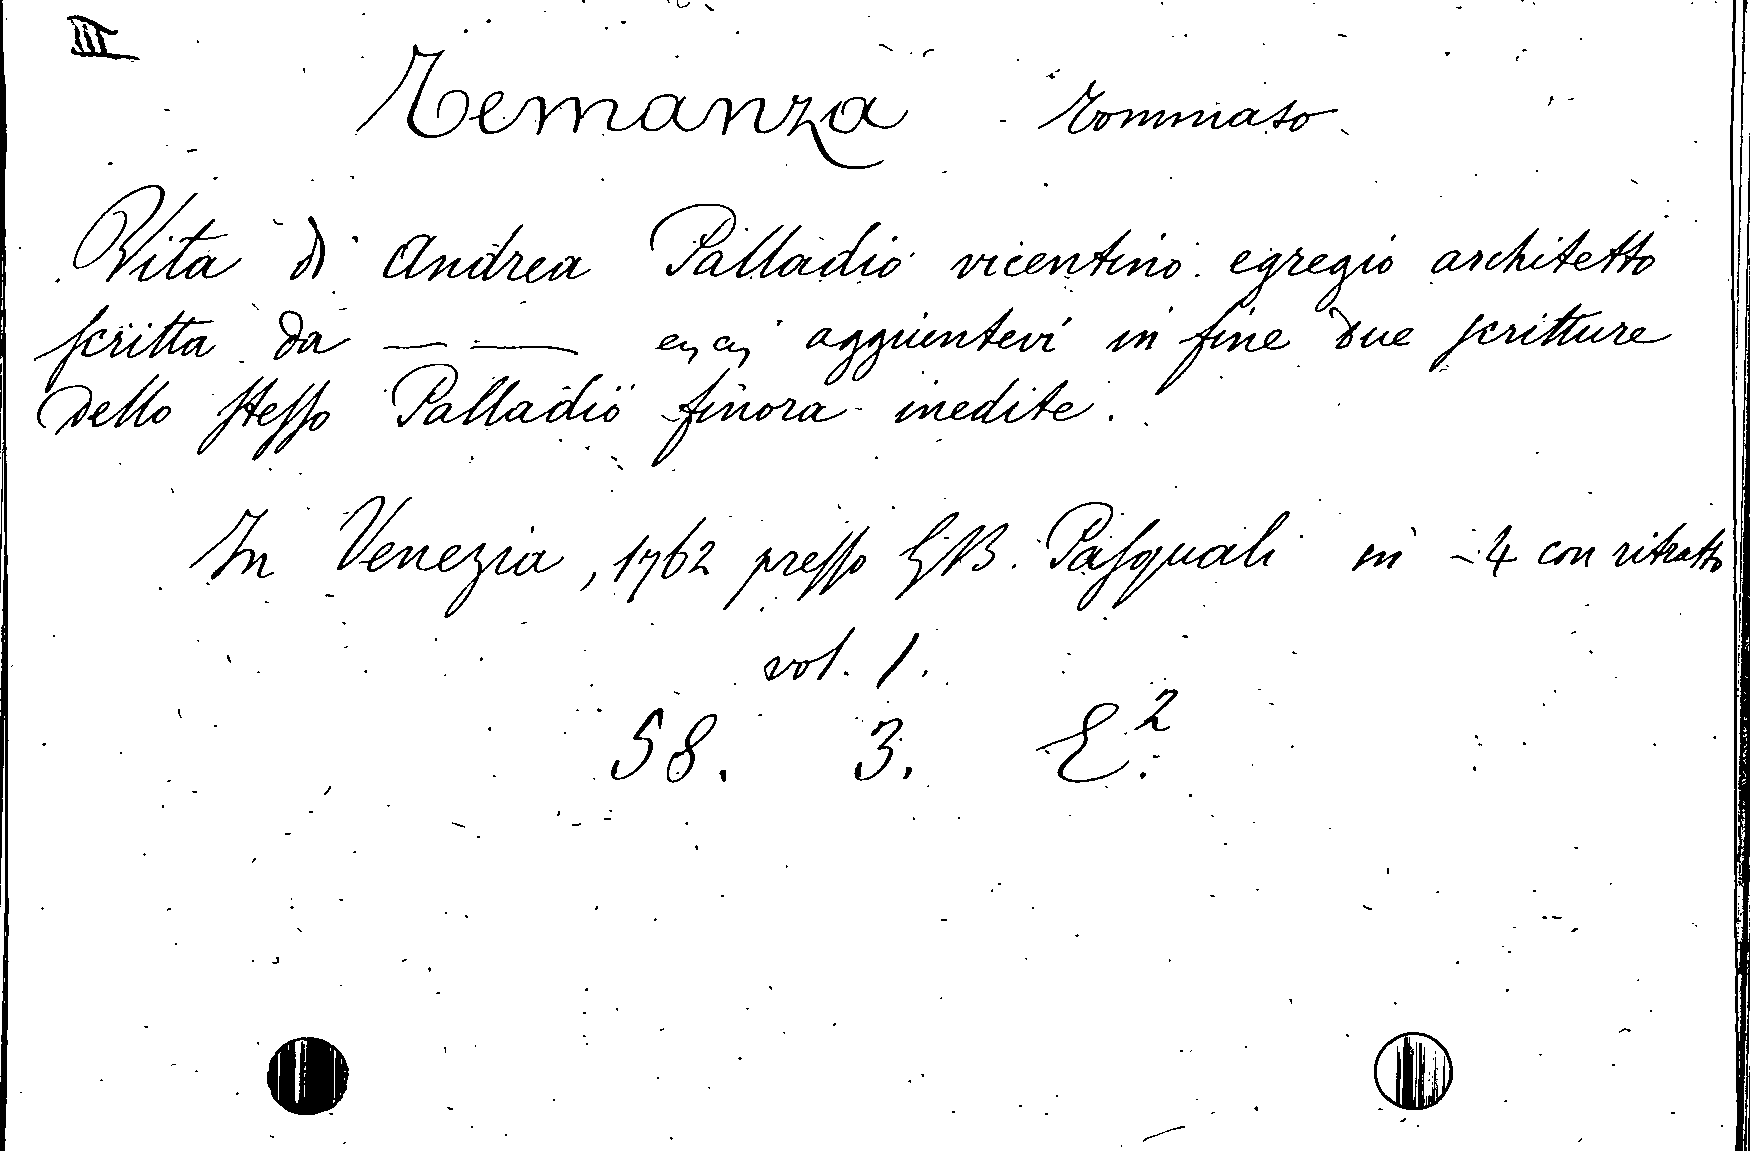 III
Temanza Tommaso
Vita di Andrea Palladio vicentino egregio architetto
scritta da — — aggiuntevi in fine due scritture
dello stesso Palladio finora inedite.
In Venezia, 1762 presso G.B. Pasquali in -4 con ritratto
vol. 1.
58. 3. E.2